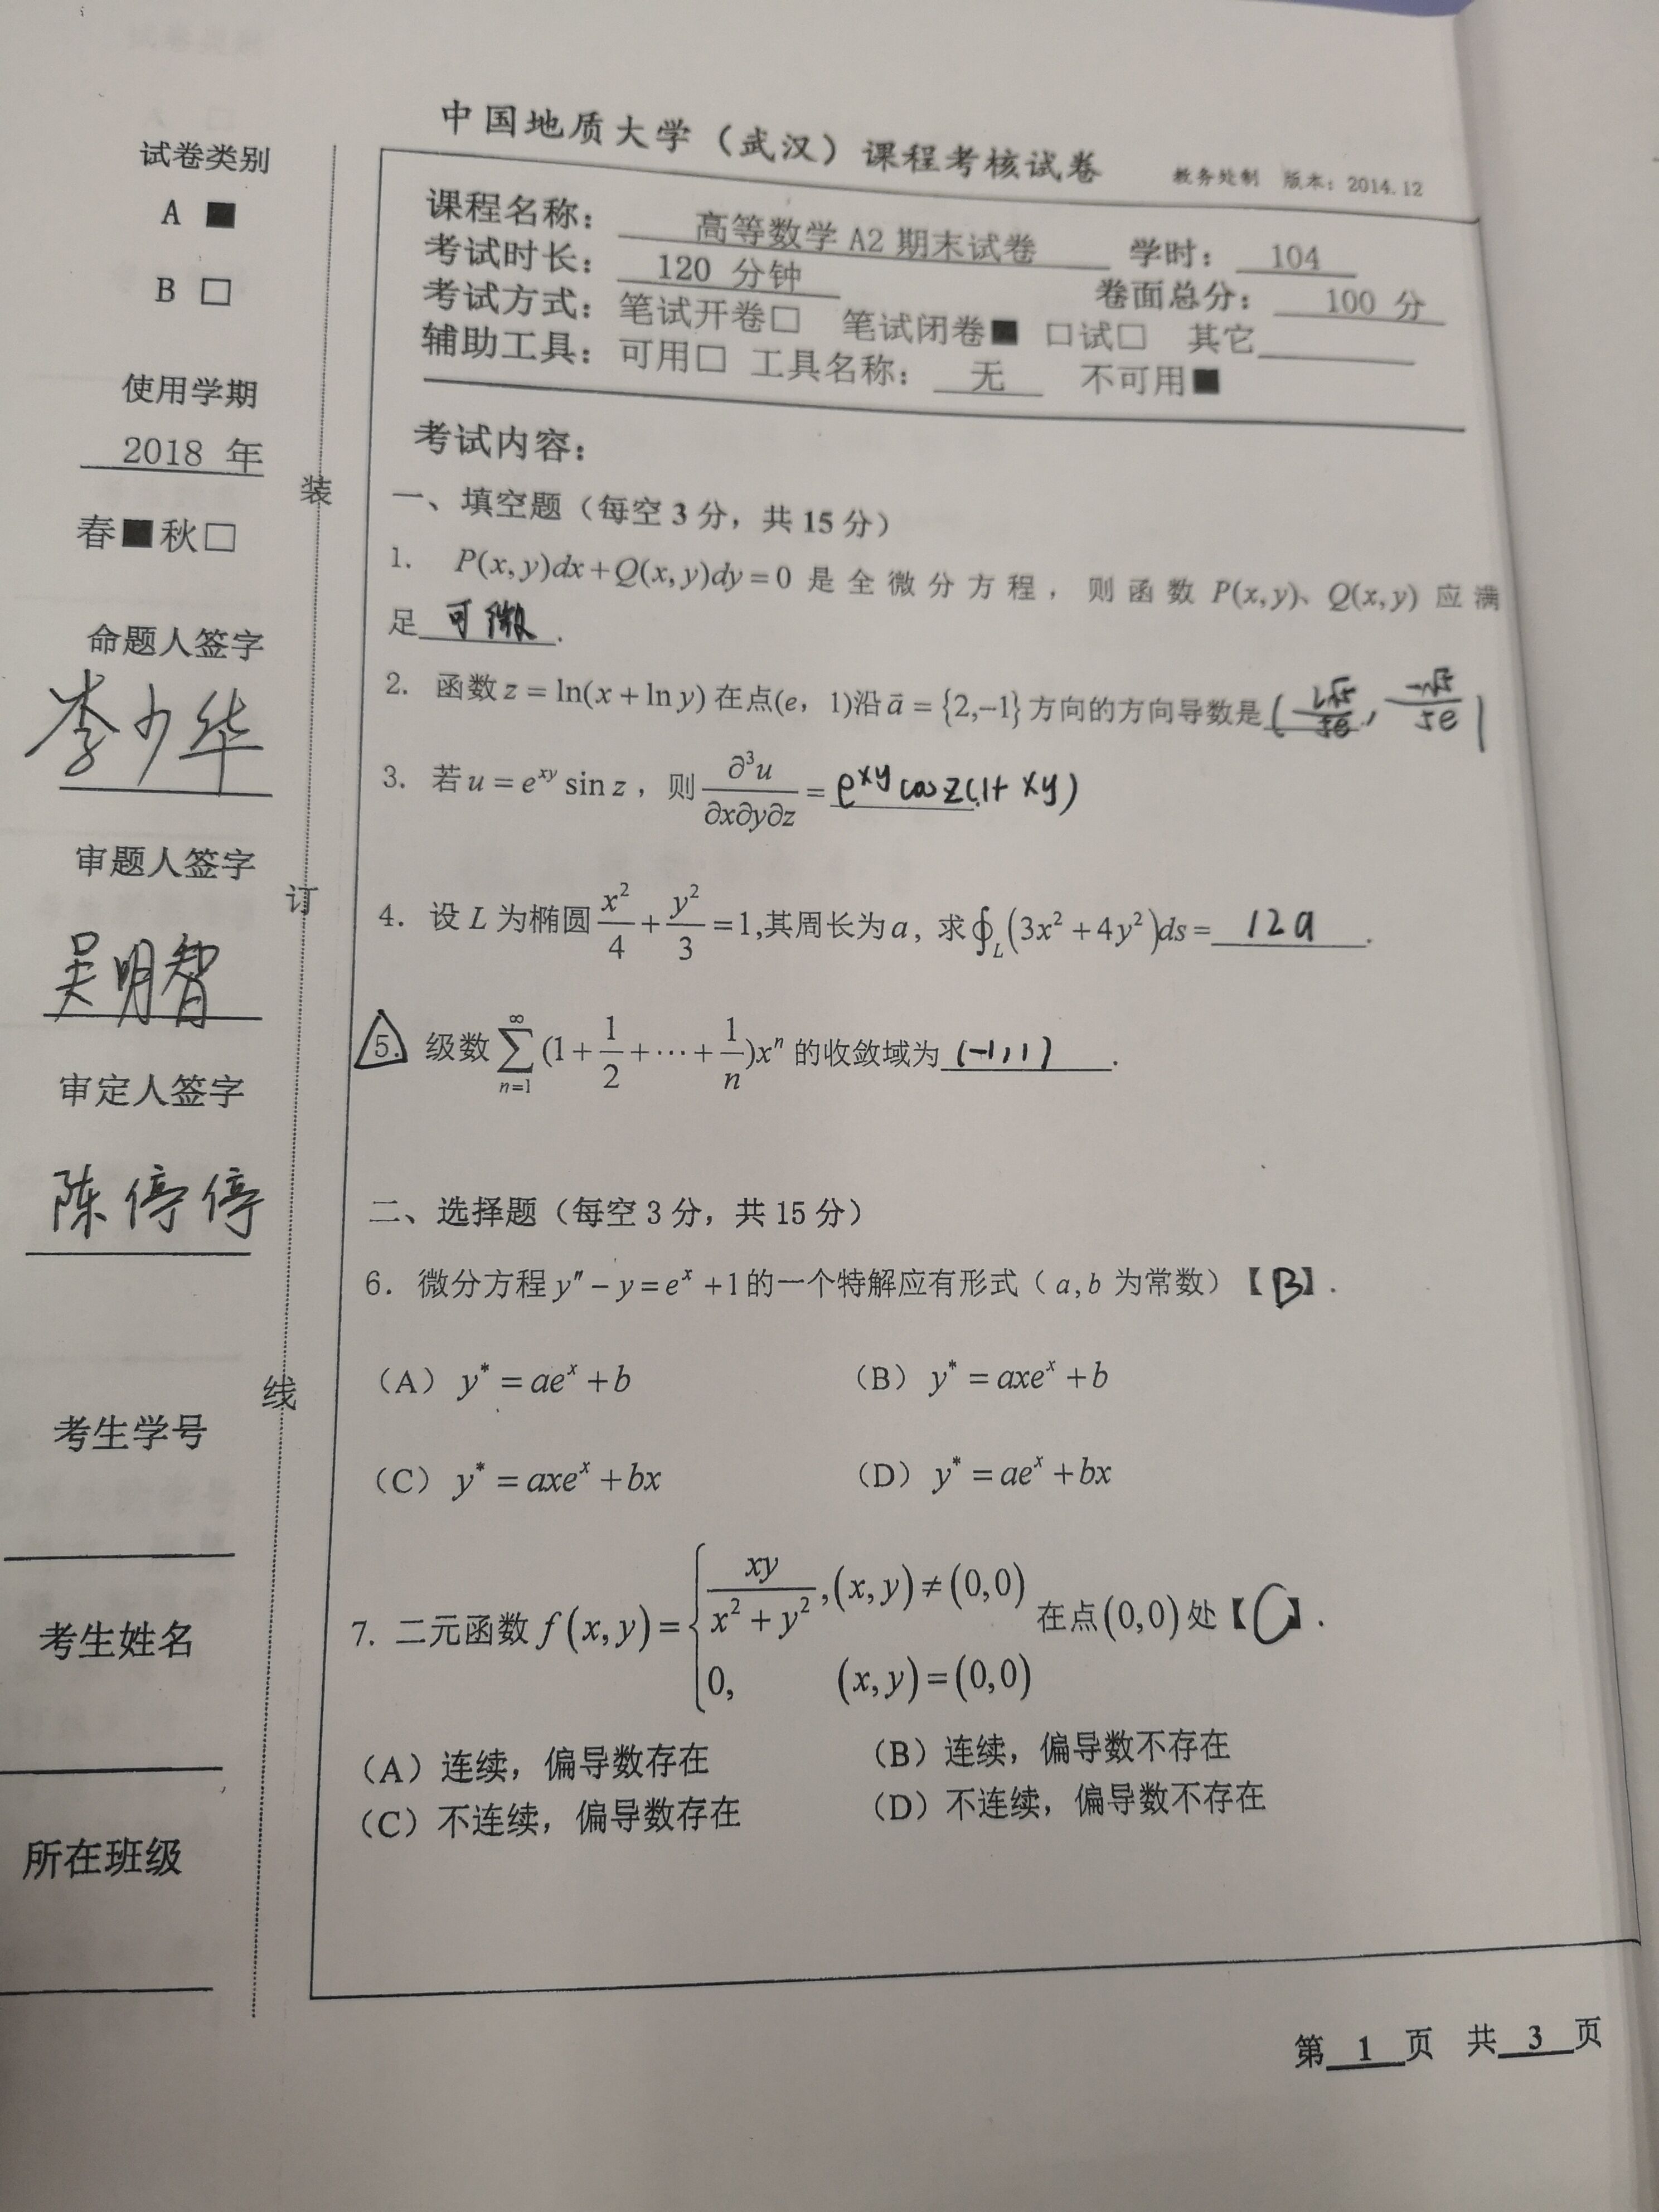 中国地质大学（武汉）课程考核试卷 教务处制 版本：2014.12
试卷类别
A ■
B □
使用学期
2018 年
春■秋□
命题人签字
李少华
审题人签字
吴明智
审定人签字
陈停停
考生学号
考生姓名
所在班级
装
订
线
课程名称： 高等数学 A2 期末试卷 学时： 104
考试时长： 120 分钟 卷面总分： 100 分
考试方式：笔试开卷□ 笔试闭卷■ 口试□ 其它
辅助工具：可用□ 工具名称： 无 不可用■
考试内容：
一、填空题（每空 3 分，共 15 分）
1. P(x,y)dx+Q(x,y)dy=0 是全微分方程，则函数 P(x,y)、Q(x,y) 应满
足 可微 .
2. 函数 z = ln(x + ln y) 在点(e，1)沿 ā = {2,−1} 方向的方向导数是 (2√5/5e, −√5/5e)
3. 若 u = e^{xy} sin z ，则 ∂³u/∂x∂y∂z = e^{xy} cos z(1+xy)
4. 设 L 为椭圆 x²/4 + y²/3 = 1,其周长为 a，求 ∮_L (3x² + 4y²)ds = 12a .
5. 级数 ∑_{n=1}^{∞} (1 + 1/2 + ⋯ + 1/n)xⁿ 的收敛域为 (-1,1) .
二、选择题（每空 3 分，共 15 分）
6. 微分方程 y″ − y = eˣ + 1 的一个特解应有形式（ a,b 为常数）【B】.
（A） y* = aeˣ + b （B） y* = axeˣ + b
（C） y* = axeˣ + bx （D） y* = aeˣ + bx
7. 二元函数 f(x,y) = { xy/(x² + y²) ,(x,y) ≠ (0,0) 在点(0,0)处【C】.
0, (x,y) = (0,0)
（A）连续，偏导数存在 （B）连续，偏导数不存在
（C）不连续，偏导数存在 （D）不连续，偏导数不存在
第 1 页 共 3 页